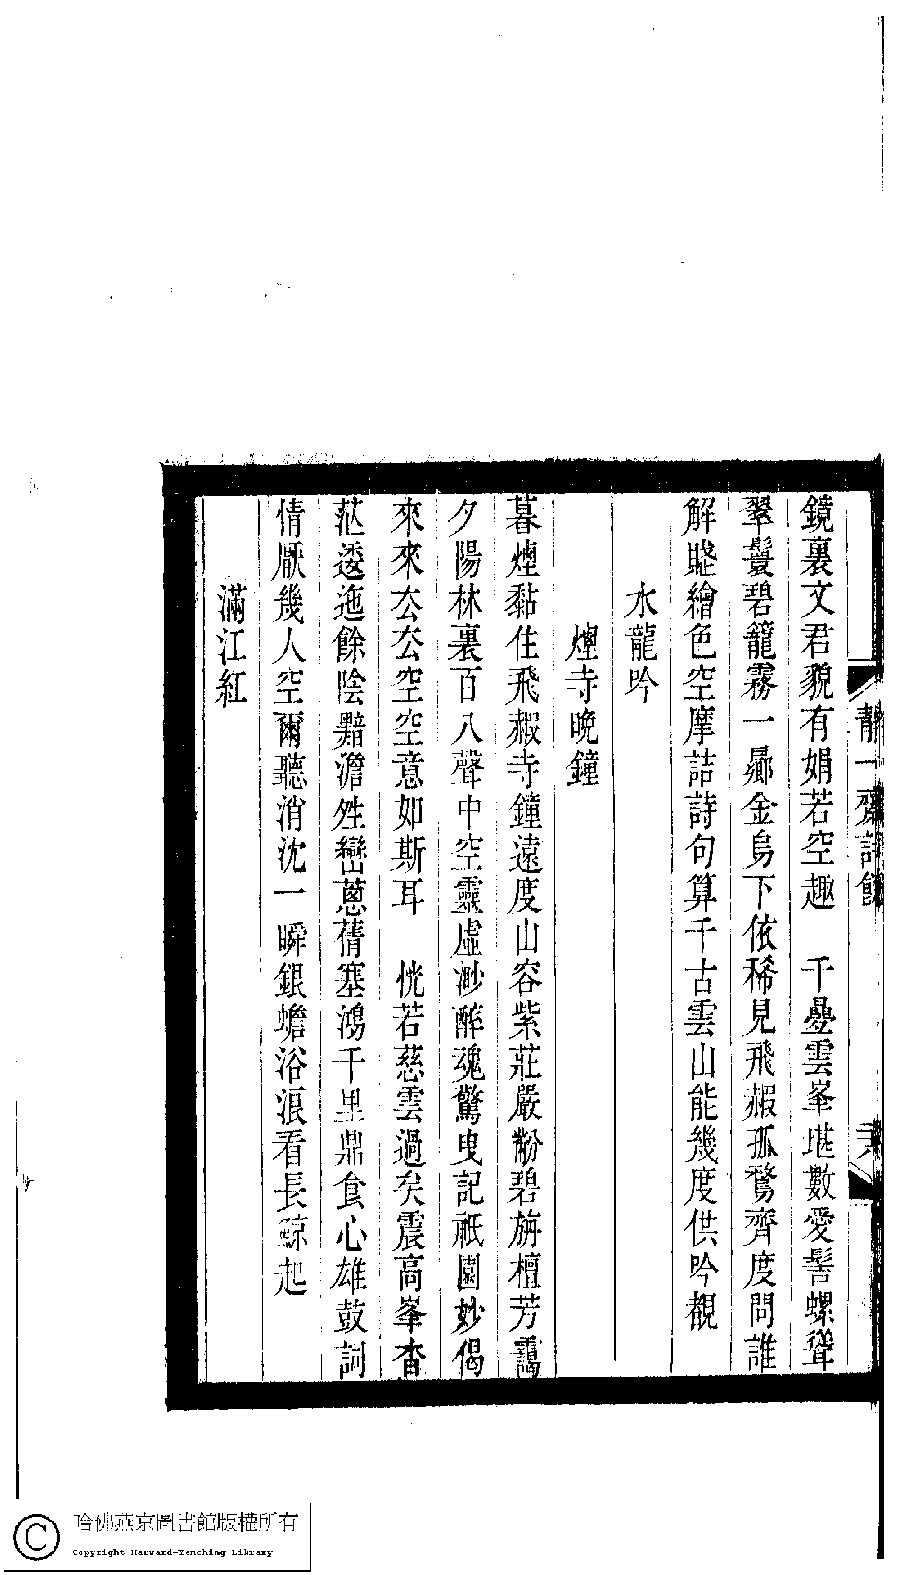 靜一齋詩餘
鏡裏文君貌有娟若空趣　千疊雲峯堪數愛髻螺聳
翠鬟碧籠霧一鄰金烏下依稀見飛赮孤鶩齊度問誰
解賤繪色空摩詰詩句算千古雲山能幾度供吟覩
水龍吟
煙寺晚鐘
暮煙黏住飛赮寺鐘遠度山容紫莊嚴粉碧旃檀芳靄
夕陽林裏百八聲中空靈虛渺醉魂驚曳記祇園妙偈
來來厺厺空空意如斯耳　恍若慈雲過矣震高峯杳
茫逶迤餘陰黯澹殅巒蔥蒨塞鴻千里鼎食心雄鼓詞
情厭幾人空爾聽消沈一瞬銀蟾浴浪看長鯨起
滿江紅
哈佛燕京圖書館版權所有
Copyright Harvard-Yenching Library